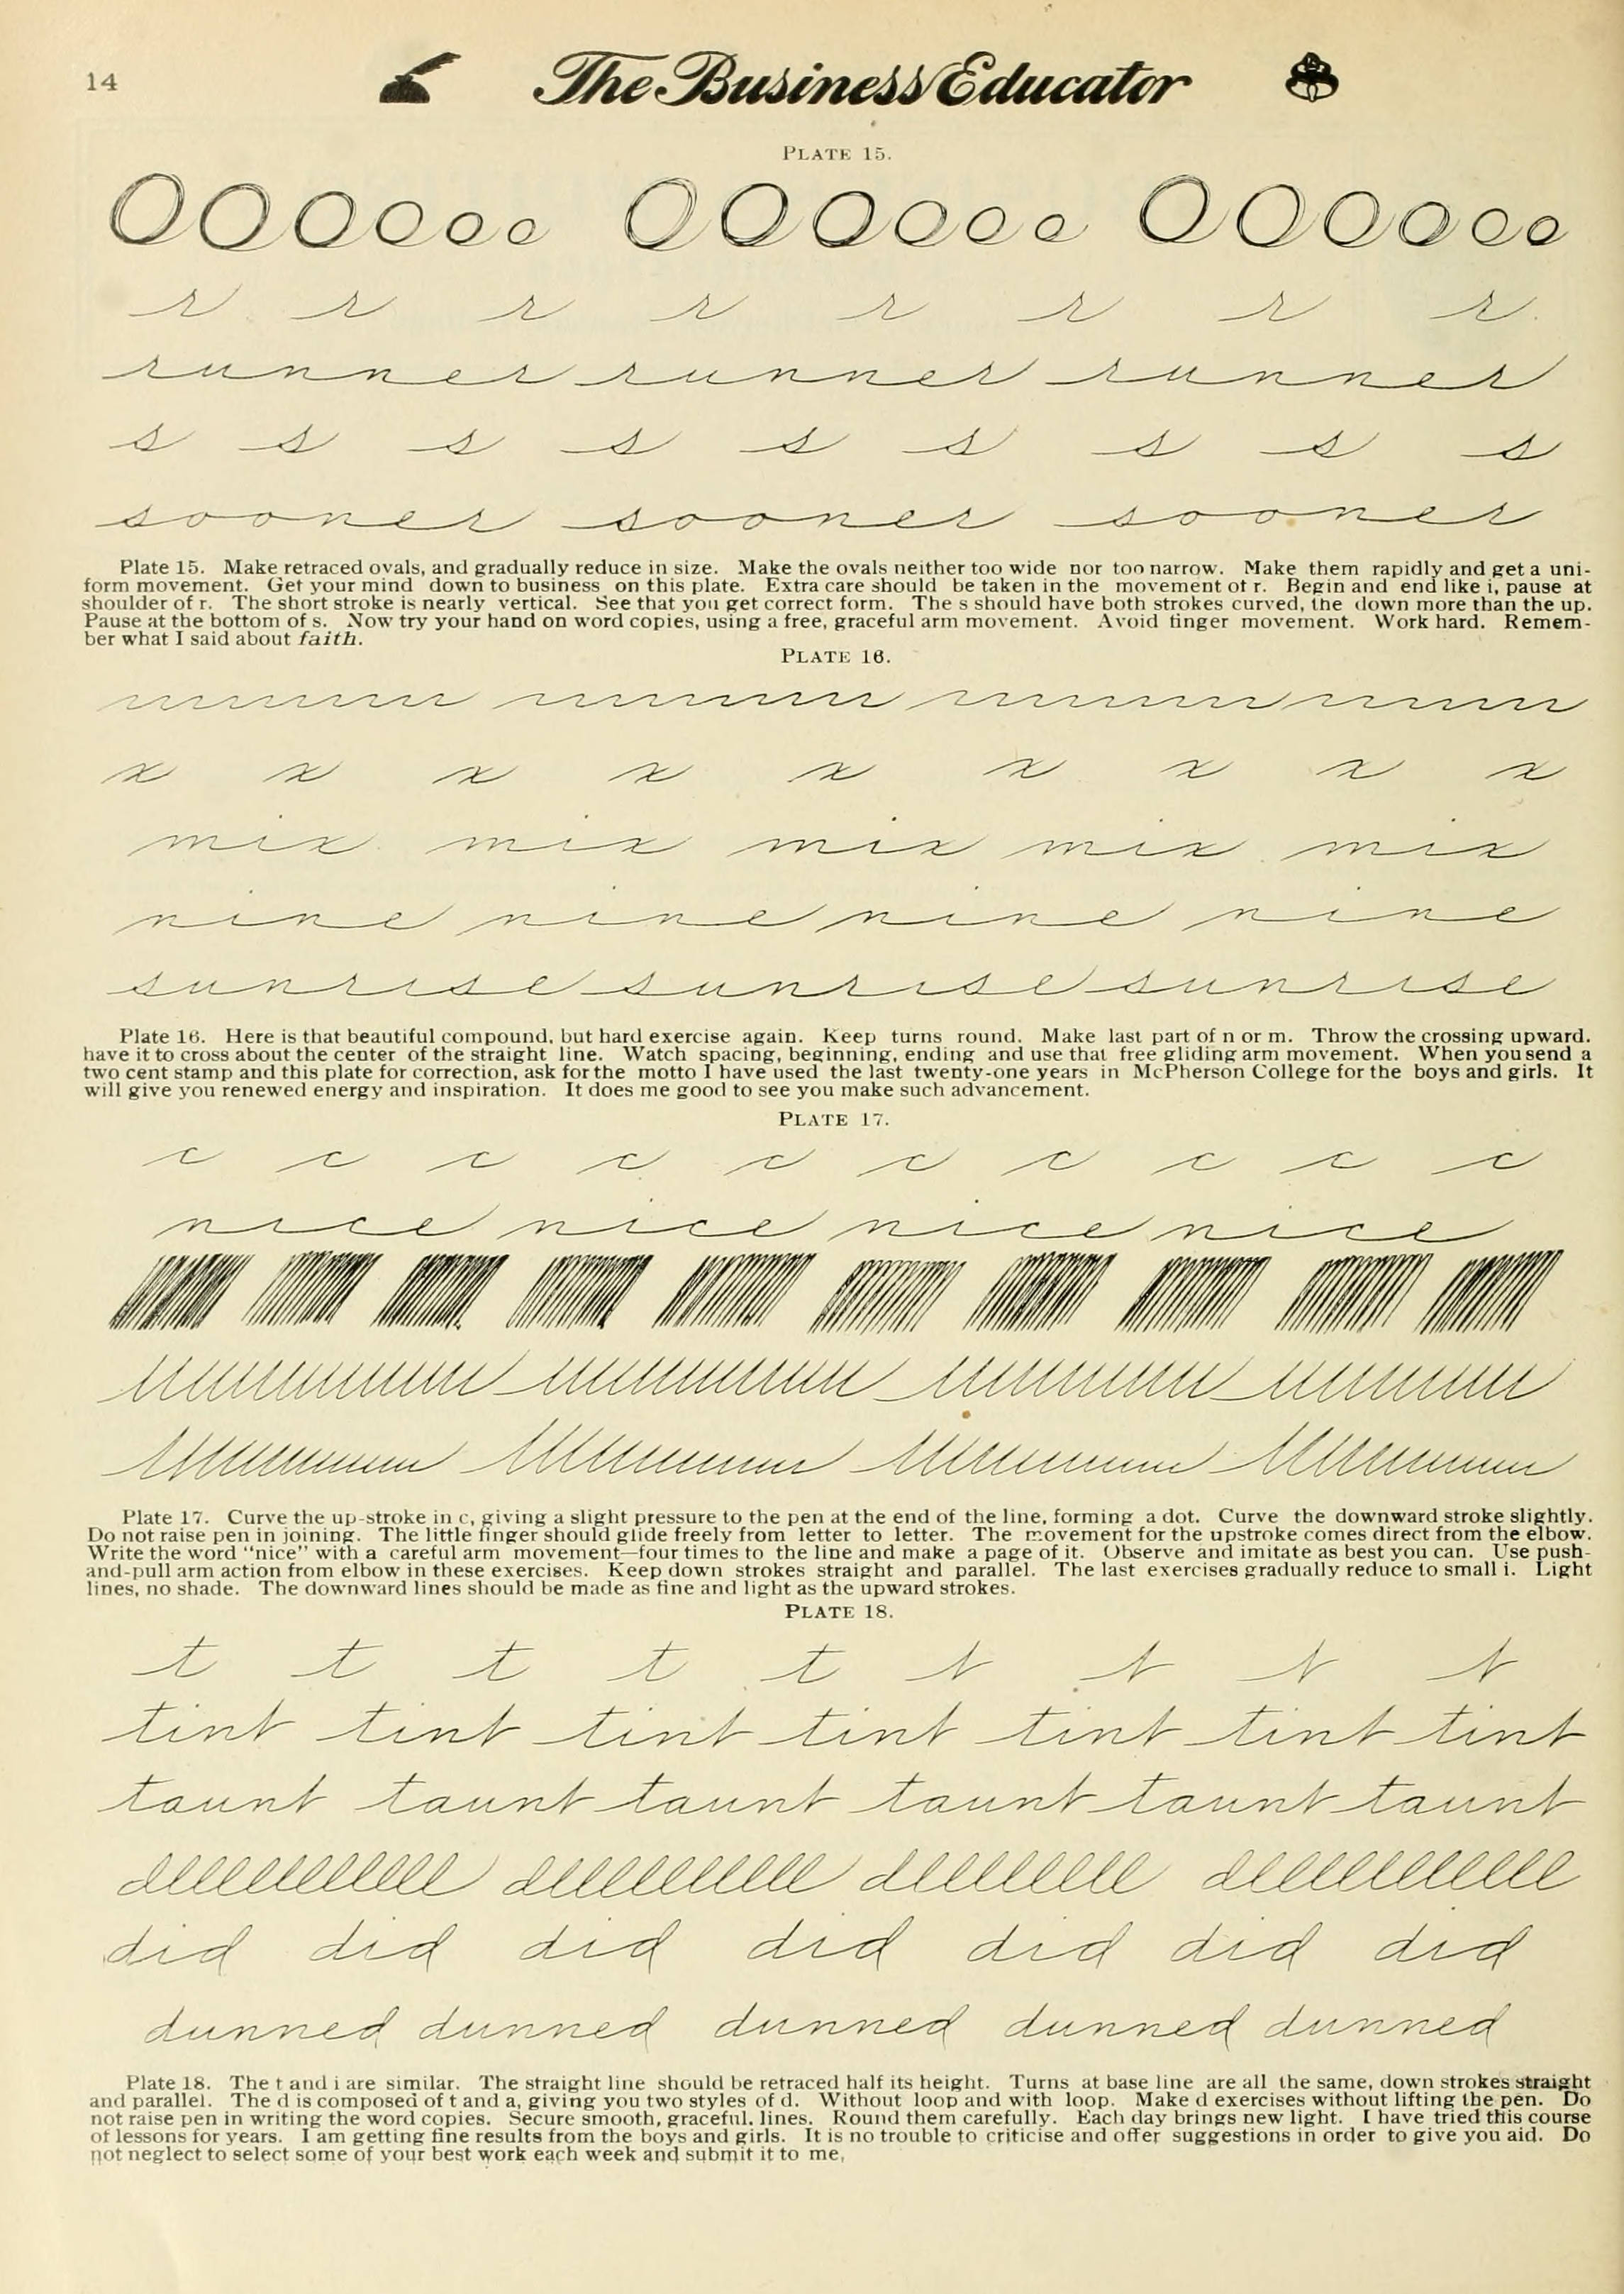 14
The Business Educator
PLATE 15.
O O O O O o o O O O O O o o O O O O O o o
r r r r r r r r
runner runner runner
s s s s s s s s s
sooner sooner sooner
Plate 15. Make retraced ovals, and gradually reduce in size. Make the ovals neither too wide nor too narrow. Make them rapidly and get a uni-
form movement. Get your mind down to business on this plate. Extra care should be taken in the movement of r. Begin and end like i, pause at
shoulder of r. The short stroke is nearly vertical. See that you get correct form. The s should have both strokes curved, the down more than the up.
Pause at the bottom of s. Now try your hand on word copies, using a free, graceful arm movement. Avoid finger movement. Work hard. Remem-
ber what I said about faith.
PLATE 16.
x x x x x x x x x
mix mix mix mix mix
nine nine nine nine
sunrise sunrise sunrise
Plate 16. Here is that beautiful compound, but hard exercise again. Keep turns round. Make last part of n or m. Throw the crossing upward.
have it to cross about the center of the straight line. Watch spacing, beginning, ending and use that free gliding arm movement. When you send a
two cent stamp and this plate for correction, ask for the motto I have used the last twenty-one years in McPherson College for the boys and girls. It
will give you renewed energy and inspiration. It does me good to see you make such advancement.
PLATE 17.
c c c c c c c c c c
nice nice nice nice
Plate 17. Curve the up-stroke in c, giving a slight pressure to the pen at the end of the line, forming a dot. Curve the downward stroke slightly.
Do not raise pen in joining. The little finger should glide freely from letter to letter. The movement for the upstroke comes direct from the elbow.
Write the word "nice" with a careful arm movement—four times to the line and make a page of it. Observe and imitate as best you can. Use push-
and-pull arm action from elbow in these exercises. Keep down strokes straight and parallel. The last exercises gradually reduce to small i. Light
lines, no shade. The downward lines should be made as fine and light as the upward strokes.
PLATE 18.
t t t t t t t t t
tint tint tint tint tint tint tint
taunt taunt taunt taunt taunt taunt
did did did did did did did
dunned dunned dunned dunned dunned
Plate 18. The t and i are similar. The straight line should be retraced half its height. Turns at base line are all the same, down strokes straight
and parallel. The d is composed of t and a, giving you two styles of d. Without loop and with loop. Make d exercises without lifting the pen. Do
not raise pen in writing the word copies. Secure smooth, graceful. lines. Round them carefully. Each day brings new light. I have tried this course
of lessons for years. I am getting fine results from the boys and girls. It is no trouble to criticise and offer suggestions in order to give you aid. Do
not neglect to select some of your best work each week and submit it to me,